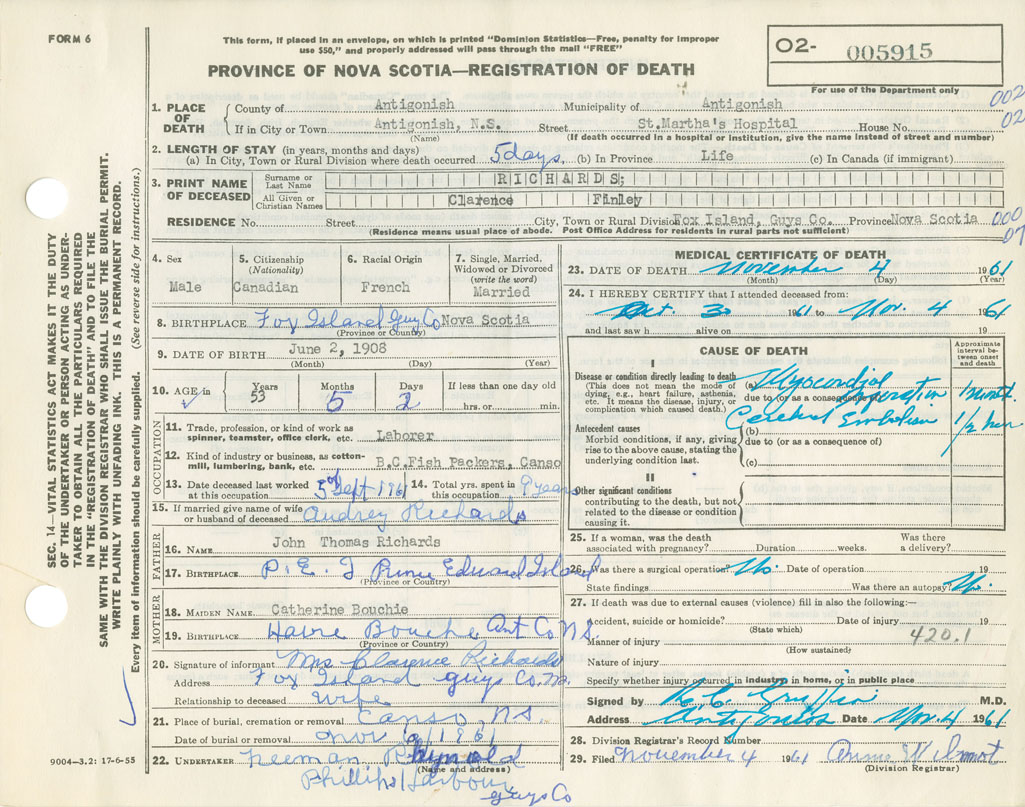 FORM 6
This form, if placed in an envelope, on which is printed "Dominion Statistics—Free, penalty for improper
use $50," and properly addressed will pass through the mail "FREE"
PROVINCE OF NOVA SCOTIA—REGISTRATION OF DEATH
O2- 005915
For use of the Department only
002
02
1. PLACE OF DEATH
County of Antigonish Municipality of Antigonish
If in City or Town Antigonish, N.S. Street St.Martha's Hospital House No.
(Name) (If death occurred in a hospital or institution, give the name instead of street and number)
2. LENGTH OF STAY (in years, months and days)
(a) In City, Town or Rural Division where death occurred 5 days, (b) In Province Life (c) In Canada (if immigrant)
3. PRINT NAME OF DECEASED
Surname or Last Name RICHARDS;
All Given or Christian Names Clarence Finley
RESIDENCE No. Street City, Town or Rural Division Fox Island, Guys Co. Province Nova Scotia
(Residence means usual place of abode. Post Office Address for residents in rural parts not sufficient)
000
07
4. Sex Male
5. Citizenship (Nationality) Canadian
6. Racial Origin French
7. Single, Married, Widowed or Divorced (write the word) Married
8. BIRTHPLACE Fox Island Guy Co Nova Scotia
(Province or Country)
9. DATE OF BIRTH June 2, 1908
(Month) (Day) (Year)
10. AGE in Years 53 Months 5 Days 2 If less than one day old hrs. or min.
OCCUPATION
11. Trade, profession, or kind of work as
spinner, teamster, office clerk, etc. Laborer
12. Kind of industry or business, as cotton-
mill, lumbering, bank, etc. B.C.Fish Packers, Canso
13. Date deceased last worked at this occupation Sept 1961 14. Total yrs. spent in this occupation 9 years
15. If married give name of wife
or husband of deceased Audrey Richards
FATHER
16. NAME John Thomas Richards
17. BIRTHPLACE P.E.I Prince Edward Island
(Province or Country)
MOTHER
18. MAIDEN NAME Catherine Bouchie
19. BIRTHPLACE Havre Bouche Ant Co NS.
(Province or Country)
20. Signature of informant Mrs Clarence Richards
Address Fox Island guys Co.
Relationship to deceased wife
21. Place of burial, cremation or removal Canso, NS
Date of burial or removal Nov 1961
22. UNDERTAKER
(Name and address)
Phillips Harbour
guys Co
9004—3.2: 17-6-55
MEDICAL CERTIFICATE OF DEATH
23. DATE OF DEATH November 4 1961
(Month) (Day) (Year)
24. I HEREBY CERTIFY that I attended deceased from:
Oct. 1961 to Nov. 4 1961
and last saw h alive on 19
CAUSE OF DEATH
Approximate interval between onset and death
I
Disease or condition directly leading to death
(This does not mean the mode of
dying, e.g., heart failure, asthenia,
etc. It means the disease, injury, or
complication which caused death.)
(a) Myocardial 1 month
due to (or as a consequence of)
Antecedent causes
Morbid conditions, if any, giving
rise to the above cause, stating the
underlying condition last.
Cerebral Embolism 1/2 hr
(b)
due to (or as a consequence of)
(c)
II
Other significant conditions
contributing to the death, but not
related to the disease or condition
causing it.
25. If a woman, was the death
associated with pregnancy? Duration weeks. Was there a delivery?
26. Was there a surgical operation? No. Date of operation 19
State findings Was there an autopsy? No.
27. If death was due to external causes (violence) fill in also the following:—
Accident, suicide or homicide? Date of injury 19
(State which)
420.1
Manner of injury
(How sustained)
Nature of injury
Specify whether injury occurred in industry, in home, or in public place
Signed by M.D.
Address Antigonish Date Nov. 4 1961
28. Division Registrar's Record Number
29. Filed November 4 1961
(Division Registrar)
SEC. 14—VITAL STATISTICS ACT MAKES IT THE DUTY
OF THE UNDERTAKER OR PERSON ACTING AS UNDER-
TAKER TO OBTAIN ALL THE PARTICULARS REQUIRED
IN THE "REGISTRATION OF DEATH" AND TO FILE THE
SAME WITH THE DIVISION REGISTRAR WHO SHALL ISSUE THE BURIAL PERMIT.
WRITE PLAINLY WITH UNFADING INK. THIS IS A PERMANENT RECORD.
Every item of information should be carefully supplied. (See reverse side for instructions.)